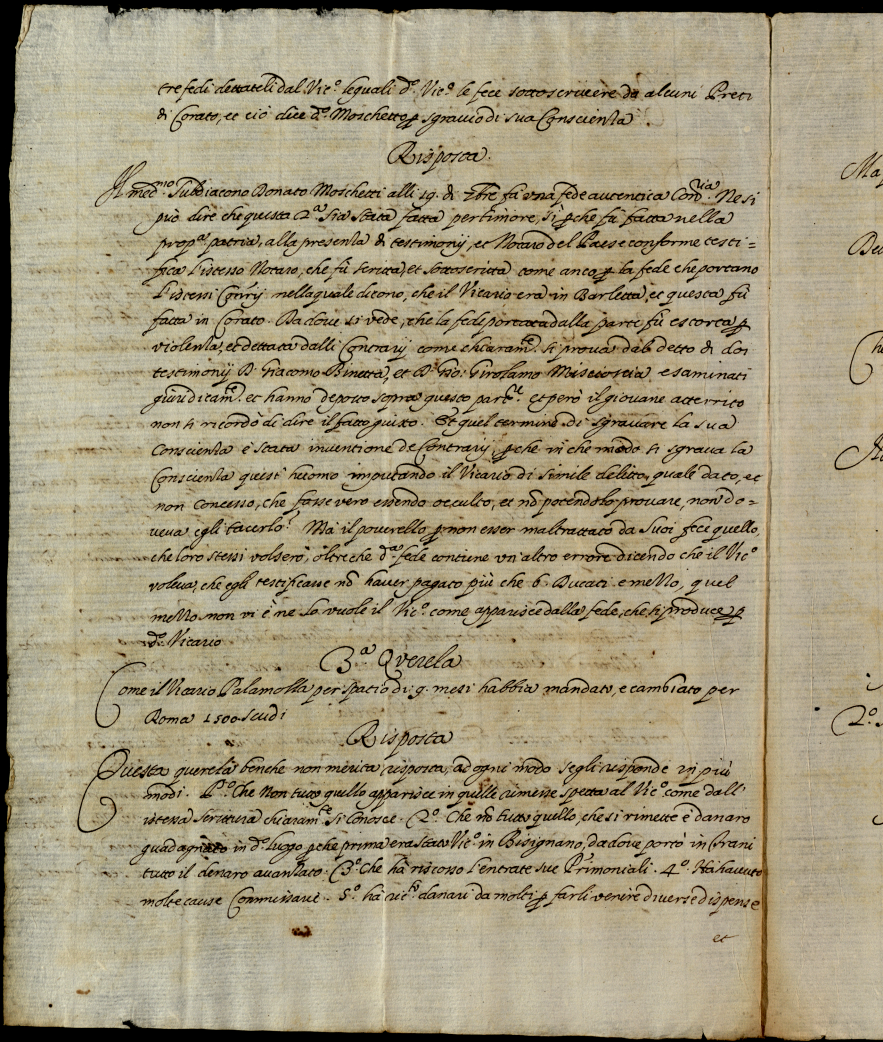 tre fedi dettateli dal Vic.º lequali d.º Vic.º le fece sottoscrivere da alcuni Preti
di Corato, et ciò dice d.º Moschetto p sgravio di sua Conscienza.
Risposta.
Il med.mo Subdiacono Donato Moschetti alli 19. di Xbre fà una fede autentica Con.ria. Ne si
può dire che questa 2.ª sia stata fatta per timore, si pche fù fatta nella
prop.ª patria, alla presenza di testimonij, et Notaro del Paese conforme testi=
fica l'istesso Notaro, che fù scritta, et sottoscritta come anco p la fede che portano
l'istessi Contrrij nella quale dicono, che il Vicario era in Barletta, et questa fù
fatta in Corato. Da dove si vede, che la fede portata dalla parte fù estorta p
violenza, et dettata dalli Contrarij come chiaram.te si prova dal detto di doi
testimonij D. Giacomo Binetta, et D. Gio: Girolamo Miscioscia esaminati
giuridicam.te et hanno deposto sopra questo part.re et però il giovane atterrito
non si ricordò di dire il fatto giusto. Et quel termine di sgravare la sua
Conscienza è stata inventione de Contrarij, pche in che modo si sgrava la
Conscienza quest' huomo imputando il Vicario di simile delitto, quale dato, et
non concesso, che fosse vero essendo occulto, et nõ potendolo provare, non do=
veva egli tacerlo? Mà il poverello p non esser maltrattato da suoi fece quello,
che loro stessi volsero, oltre che d.ª fede contiene un'altro errore dicendo che il Vic.º
voleva, che egli testificasse nõ haver pagato più che 6. Ducati e mezzo, quel
mezzo non vi è ne lo vuole il Vic.º come apparisce dalla fede, che si produce p
d.º Vicario
3.ª Querela
Come il Vicario Palamolla per spatio di 9. mesi habbia mandato, e cambiato per
Roma 1500 scudi
Risposta
Questa querela benche non merita risposta, ad ogni modo segli risponde in più
modi. P.º Che non tutto quello apparisce in quelle rimesse spetta al Vic.º come dall'
istessa scrittura chiaram.te si conosce. 2.º Che nõ tutto quello, che si rimette è danaro
guadagnato in d.º luogo pche prima era stato Vic.º in Bisignano, da dove portò in Trani
tutto il denaro avanzato. 3.º Che hà riscosso l'entrate sue P.rimoniali. 4.º Hà havuto
molte cause Commissarie. 5.º hà ric.to danari da molti p farli venire diverse dispense
et